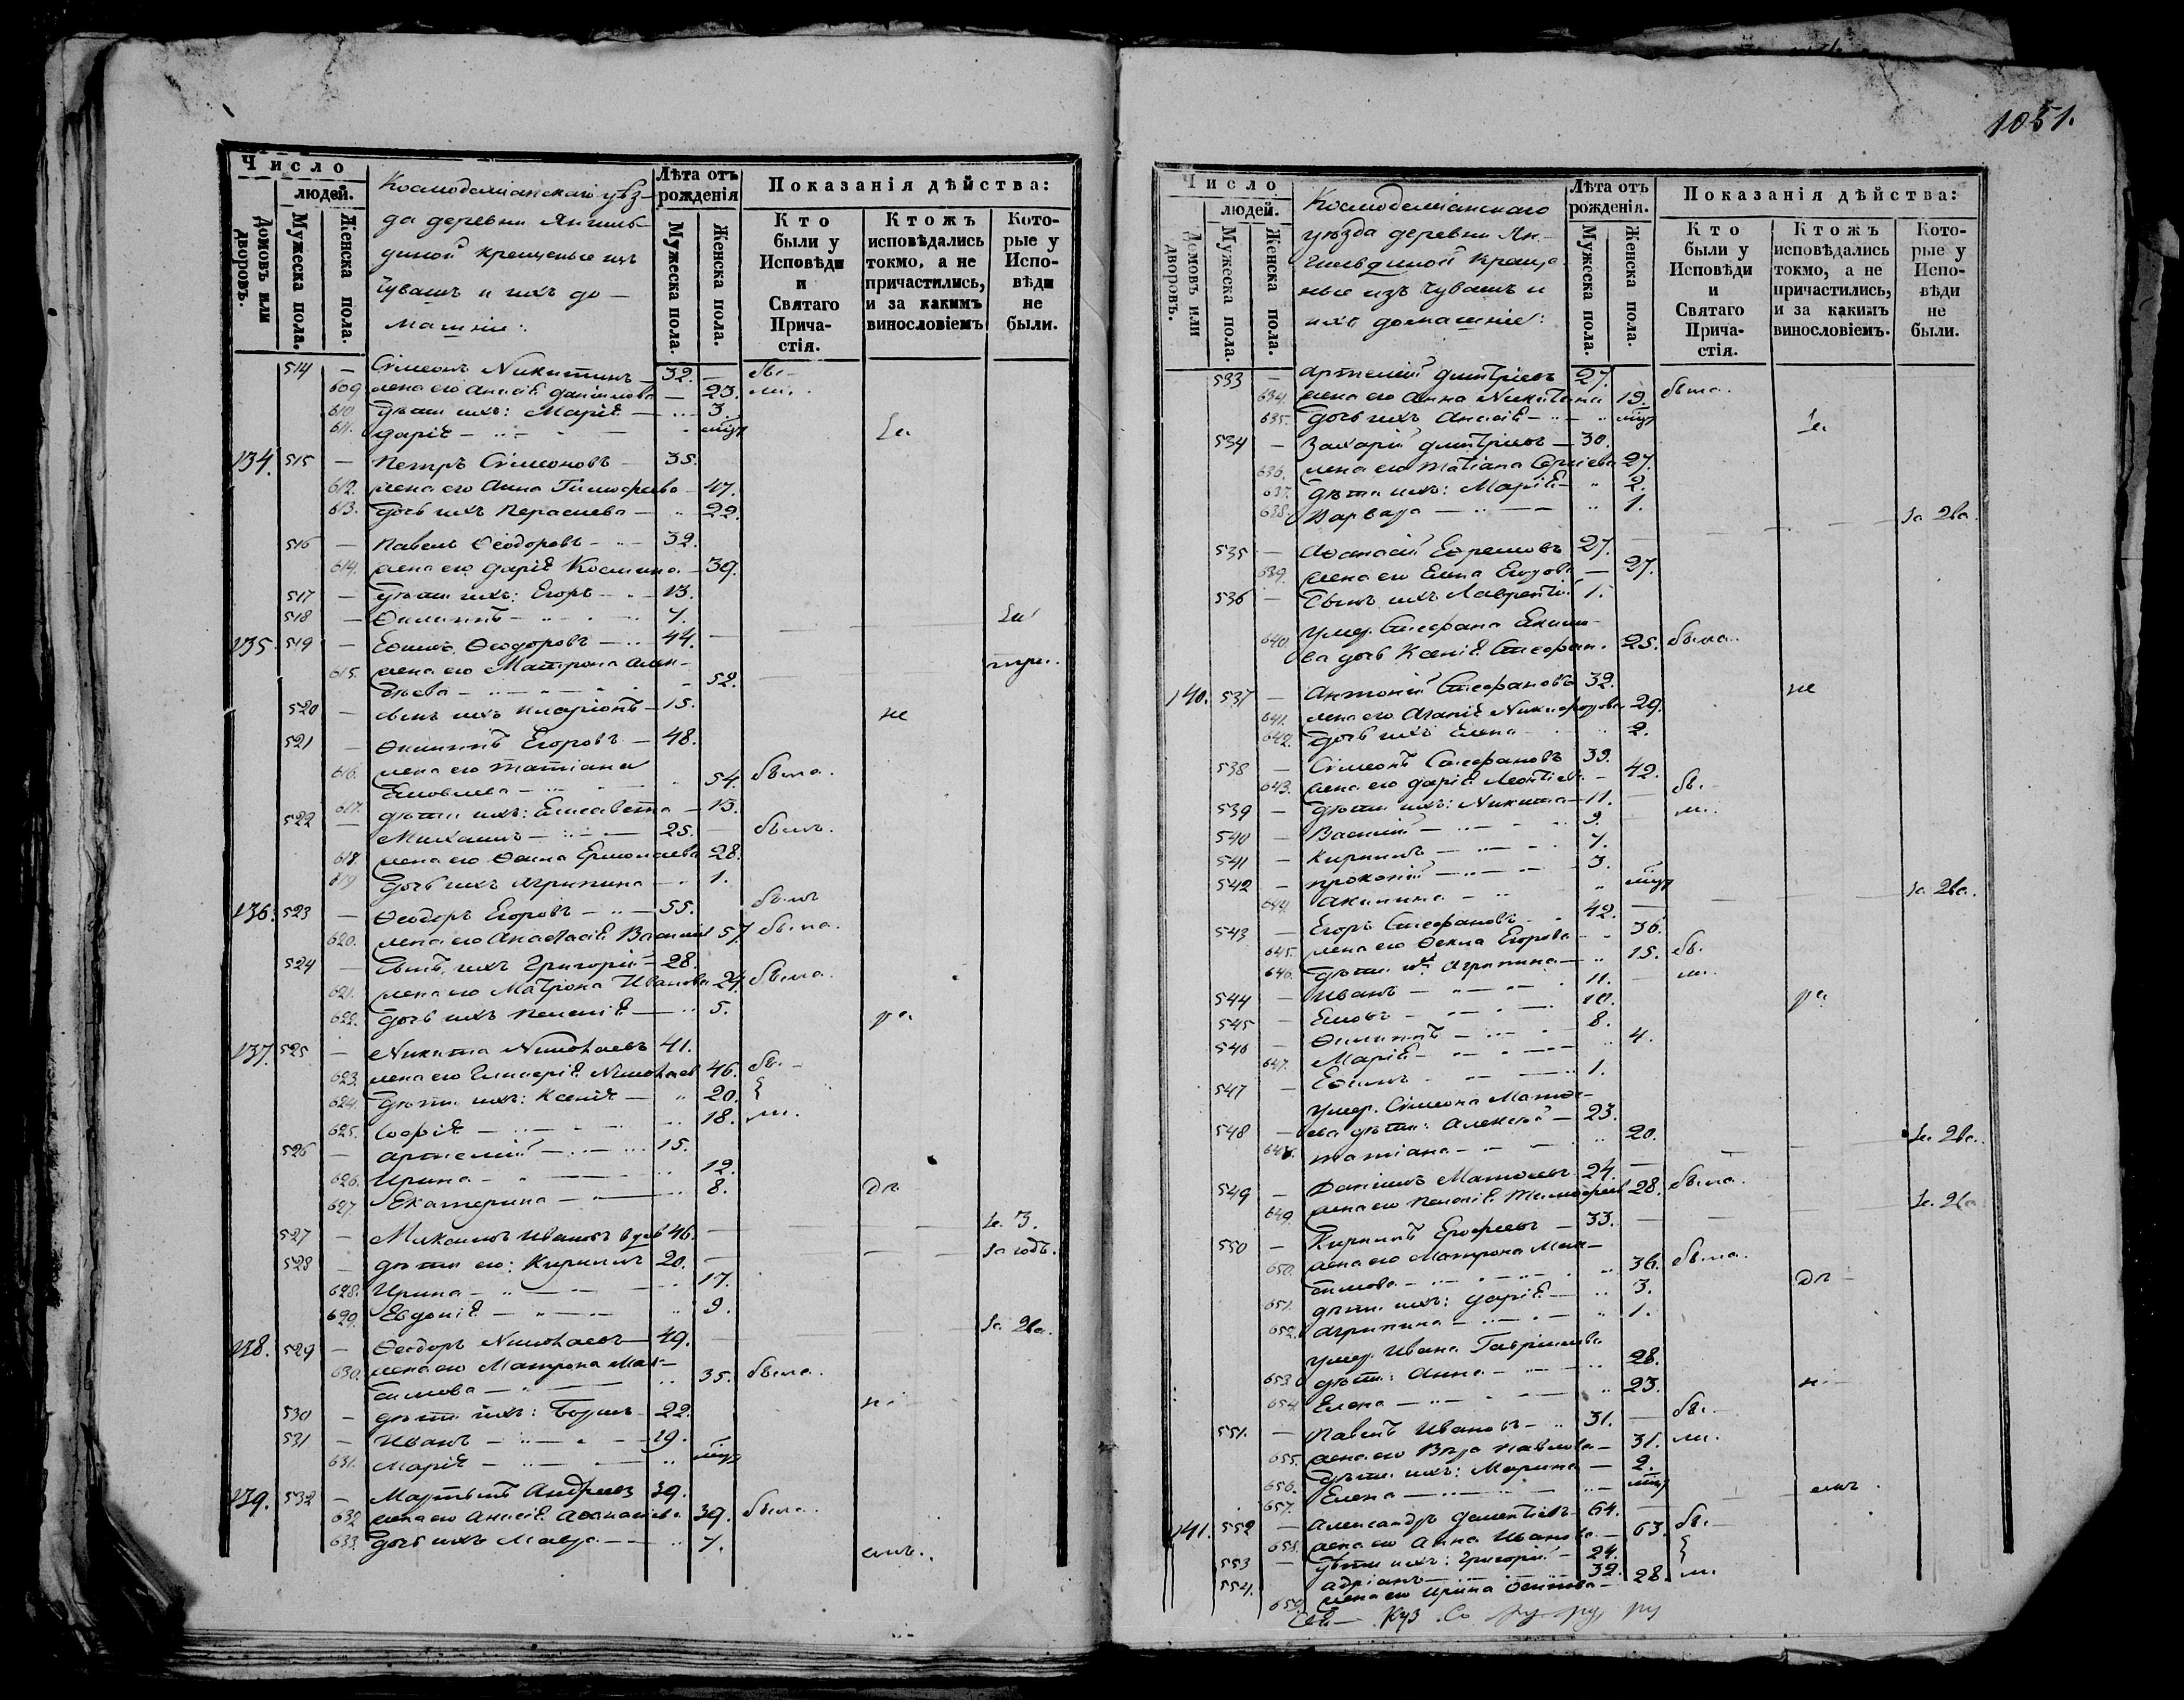 Число
людей.
Домовъ или дворовъ.
Мужеска пола.
Женска пола.
Космодемианскаго уѣз-
да деревни Янгиль-
диной крещеные изъ
Чувашъ и ихъ до-
машніе:
Лѣта отъ рожденія
Мужеска пола.
Женска пола.
Показанія дѣйства:
Кто были у Исповѣди и Святаго Причастія.
Ктожъ исповѣдались токмо, а не причастились, и за какимъ винословіемъ
Которые у Исповѣди не были.
514 — Симеонъ Никитинъ — 32. — бы-
609 жена его Анисія Данилова — 23. ли.
610 дѣти ихъ: Марія — 3.
611. Дарія — мцъ
134. 515 — Петръ Симеоновъ — 35.
612. жена его Анна Тимофеева — 47.
613. дочь ихъ Параскева — 22.
516 — Павелъ Ѳеодоровъ — 32.
614. жена его Дарія Космина — 39.
517 — дѣти ихъ: Егоръ — 13.
518 — Филиппъ — 7. За
135. 519 — Ефимъ Ѳеодоровъ — 44. —
615. жена его Матрона
— 52.
520 — сынъ ихъ Иларіонъ — 15. не
521 — Филиппъ Егоровъ — 48.
616. жена его Татіана
— 54. была.
617. дѣти ихъ: Елисавета — 13.
522 — Михаилъ — 25. — былъ.
618. жена его Фекла Ермолаева 28.
619 дочь ихъ Агрипина — 1.
136. 523 — Ѳеодоръ Егоровъ — 55. былъ
620. жена его Анастасія Василіева 57. была.
524 — сынъ ихъ Григорій — 28.
621. жена его Матрона Иванова 24. была.
622. дочь ихъ Пелагія — 5.
137. 525 — Никита Николаевъ 41.
623. жена его Гликерія Николаев 46. бы-
624. дѣти ихъ: Ксенія — 20.
625. Софія — 18. ли.
526 — Артемій — 15.
626. Ирина — 12.
627. Екатерина — 8.
527 — Максимъ Ивановъ вдов 46. — За 3.
528 — дѣти его: Кирилъ 20. — За годъ.
628. Ирина — 17.
629. Евдокія — 9.
138. 529 — Ѳеодоръ Николаевъ — 49. — За два.
630. жена его Матрона Мак-
симова — 35. была.
530 — дѣти ихъ: Борисъ 22.
531 — Иванъ — 19.
631. Марія — мцъ
139. 532 — Мартынъ Андреевъ 39.
632 жена его Анисія Афанасіева 39. была.
633. дочь ихъ Мавра — 7.
1051.
Число
людей.
Домовъ или дворовъ.
Мужеска пола.
Женска пола.
Космодемианскаго
уѣзда деревни Ян-
гильдиной Креще-
ные изъ Чувашъ и
ихъ домашніе:
Лѣта отъ рожденія.
Мужеска пола.
Женска пола.
Показанія дѣйства:
Кто были у Исповѣди и Святаго Причастія.
Ктожъ исповѣдались токмо, а не причастились, и за какимъ винословіемъ.
Которые у Исповѣди не были.
533 — Артемій Дмитріевъ 27.
634. жена его Анна Никитина 19. была.
635. дочь ихъ Анисія — мцъ
534 — Захарій Дмитріевъ — 30.
636. жена его Татіана Сергіева 27.
637. дѣти ихъ: Марія — 2.
638. Варвара — 1.
535 — Афанасій Ефремовъ 27. — За два.
639. жена его Елена Егорова — 27.
536 — Сынъ ихъ Лаврентій 1.
умер. Стефана
640. дочь Ксенія Стефан. 25. была.
140. 537 — Антоній Стефановъ 32. не
641. жена его Агапія Никифорова 29.
642. дочь ихъ Елена — 2.
538 — Симеонъ Стефановъ 39.
643. жена его Дарія Леонтіева — 42.
539 — дѣти ихъ: Никита — 11. — бы-
540 — Василій — 9. ли.
541 — Кирилъ — 7.
542 — Прокопій — 3.
644. Акилина — мцъ
543 — Егоръ Стефановъ — 42. — За два.
645. жена его Фекла Егорова — 36.
646. дѣти ихъ Агрипина — 15. бы-
544 — Иванъ — 11. — ли.
545 — — 10.
546 — Филиппъ — 8.
647. Марія — 4.
547 — Ефимъ — 1.
умер. Симеона
548 — дѣти: Алексѣй — 23.
648. Татіана — 20.
549 — Даніилъ 24. — За два.
649. жена его Пелагія Тимофеев 28. была.
550 — Кирилъ Ерофеевъ — 33. — За два
650. жена его Матрона Мак-
симова — 36. была.
651. дѣти ихъ: Дарія — 3.
652. Агрипина — 1.
умер. Ивана Гавриилова
653. дѣти: Анна — 28.
654. Елена — 23.
551. — Павелъ Ивановъ — 31. — бы-
655. жена его Вѣра Павлова — 31. ли.
656. дѣти ихъ: Марина — 2.
657. Елена — мцъ
141. 552 — Александръ 64. —
658. жена его Анна Иванова — 63. бы-
553 — дѣти ихъ: Григорій — 24.
554. Адріанъ — 32. ли.
659. жена его Ирина Осипова — 28.